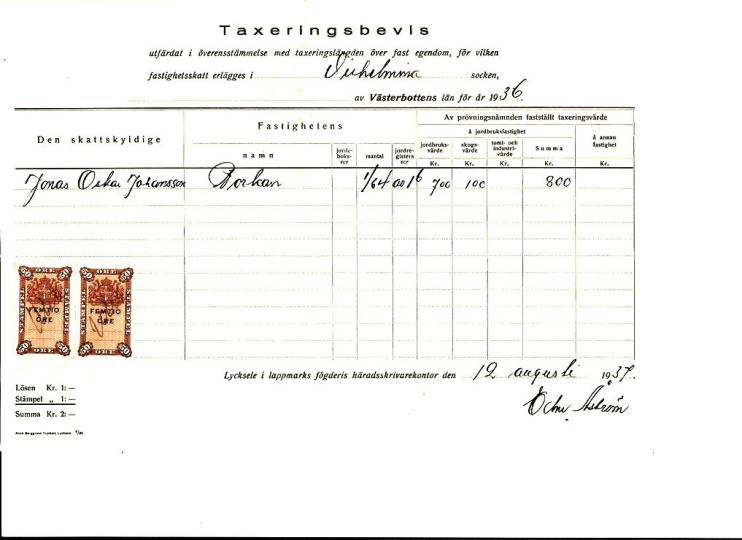 Taxeringsbevis
utfärdat i överensstämmelse med taxeringslängden över fast egendom, för vilken
fastighetsskatt erlägges i Vilhelmina socken,
av Västerbottens län för år 1936.
Den skattskyldige
Fastighetens
namn
jorde-
boks-
nr
mantal
jordre-
gisters
nr
Av prövningsnämnden fastställt taxeringsvärde
å jordbruksfastighet
jordbruks-
värde
Kr.
skogs-
värde
Kr.
tomt- och
industri-
värde
Kr.
Summa
Kr.
å annan
fastighet
Kr.
Jonas Oskar Johansson Borkan 1/64 700 100 800
50 ÖRE 50
STÄMPEL
FEMTIO
ÖRE
STÄMPEL
50 ÖRE 50
50 ÖRE 50
STÄMPEL
FEMTIO
ÖRE
STÄMPEL
50 ÖRE 50
Lycksele i lappmarks fögderis häradsskrivarekontor den 12 augusti 1937.
Lösen Kr. 1:—
Stämpel „ 1:—
Summa Kr. 2:—
Åström